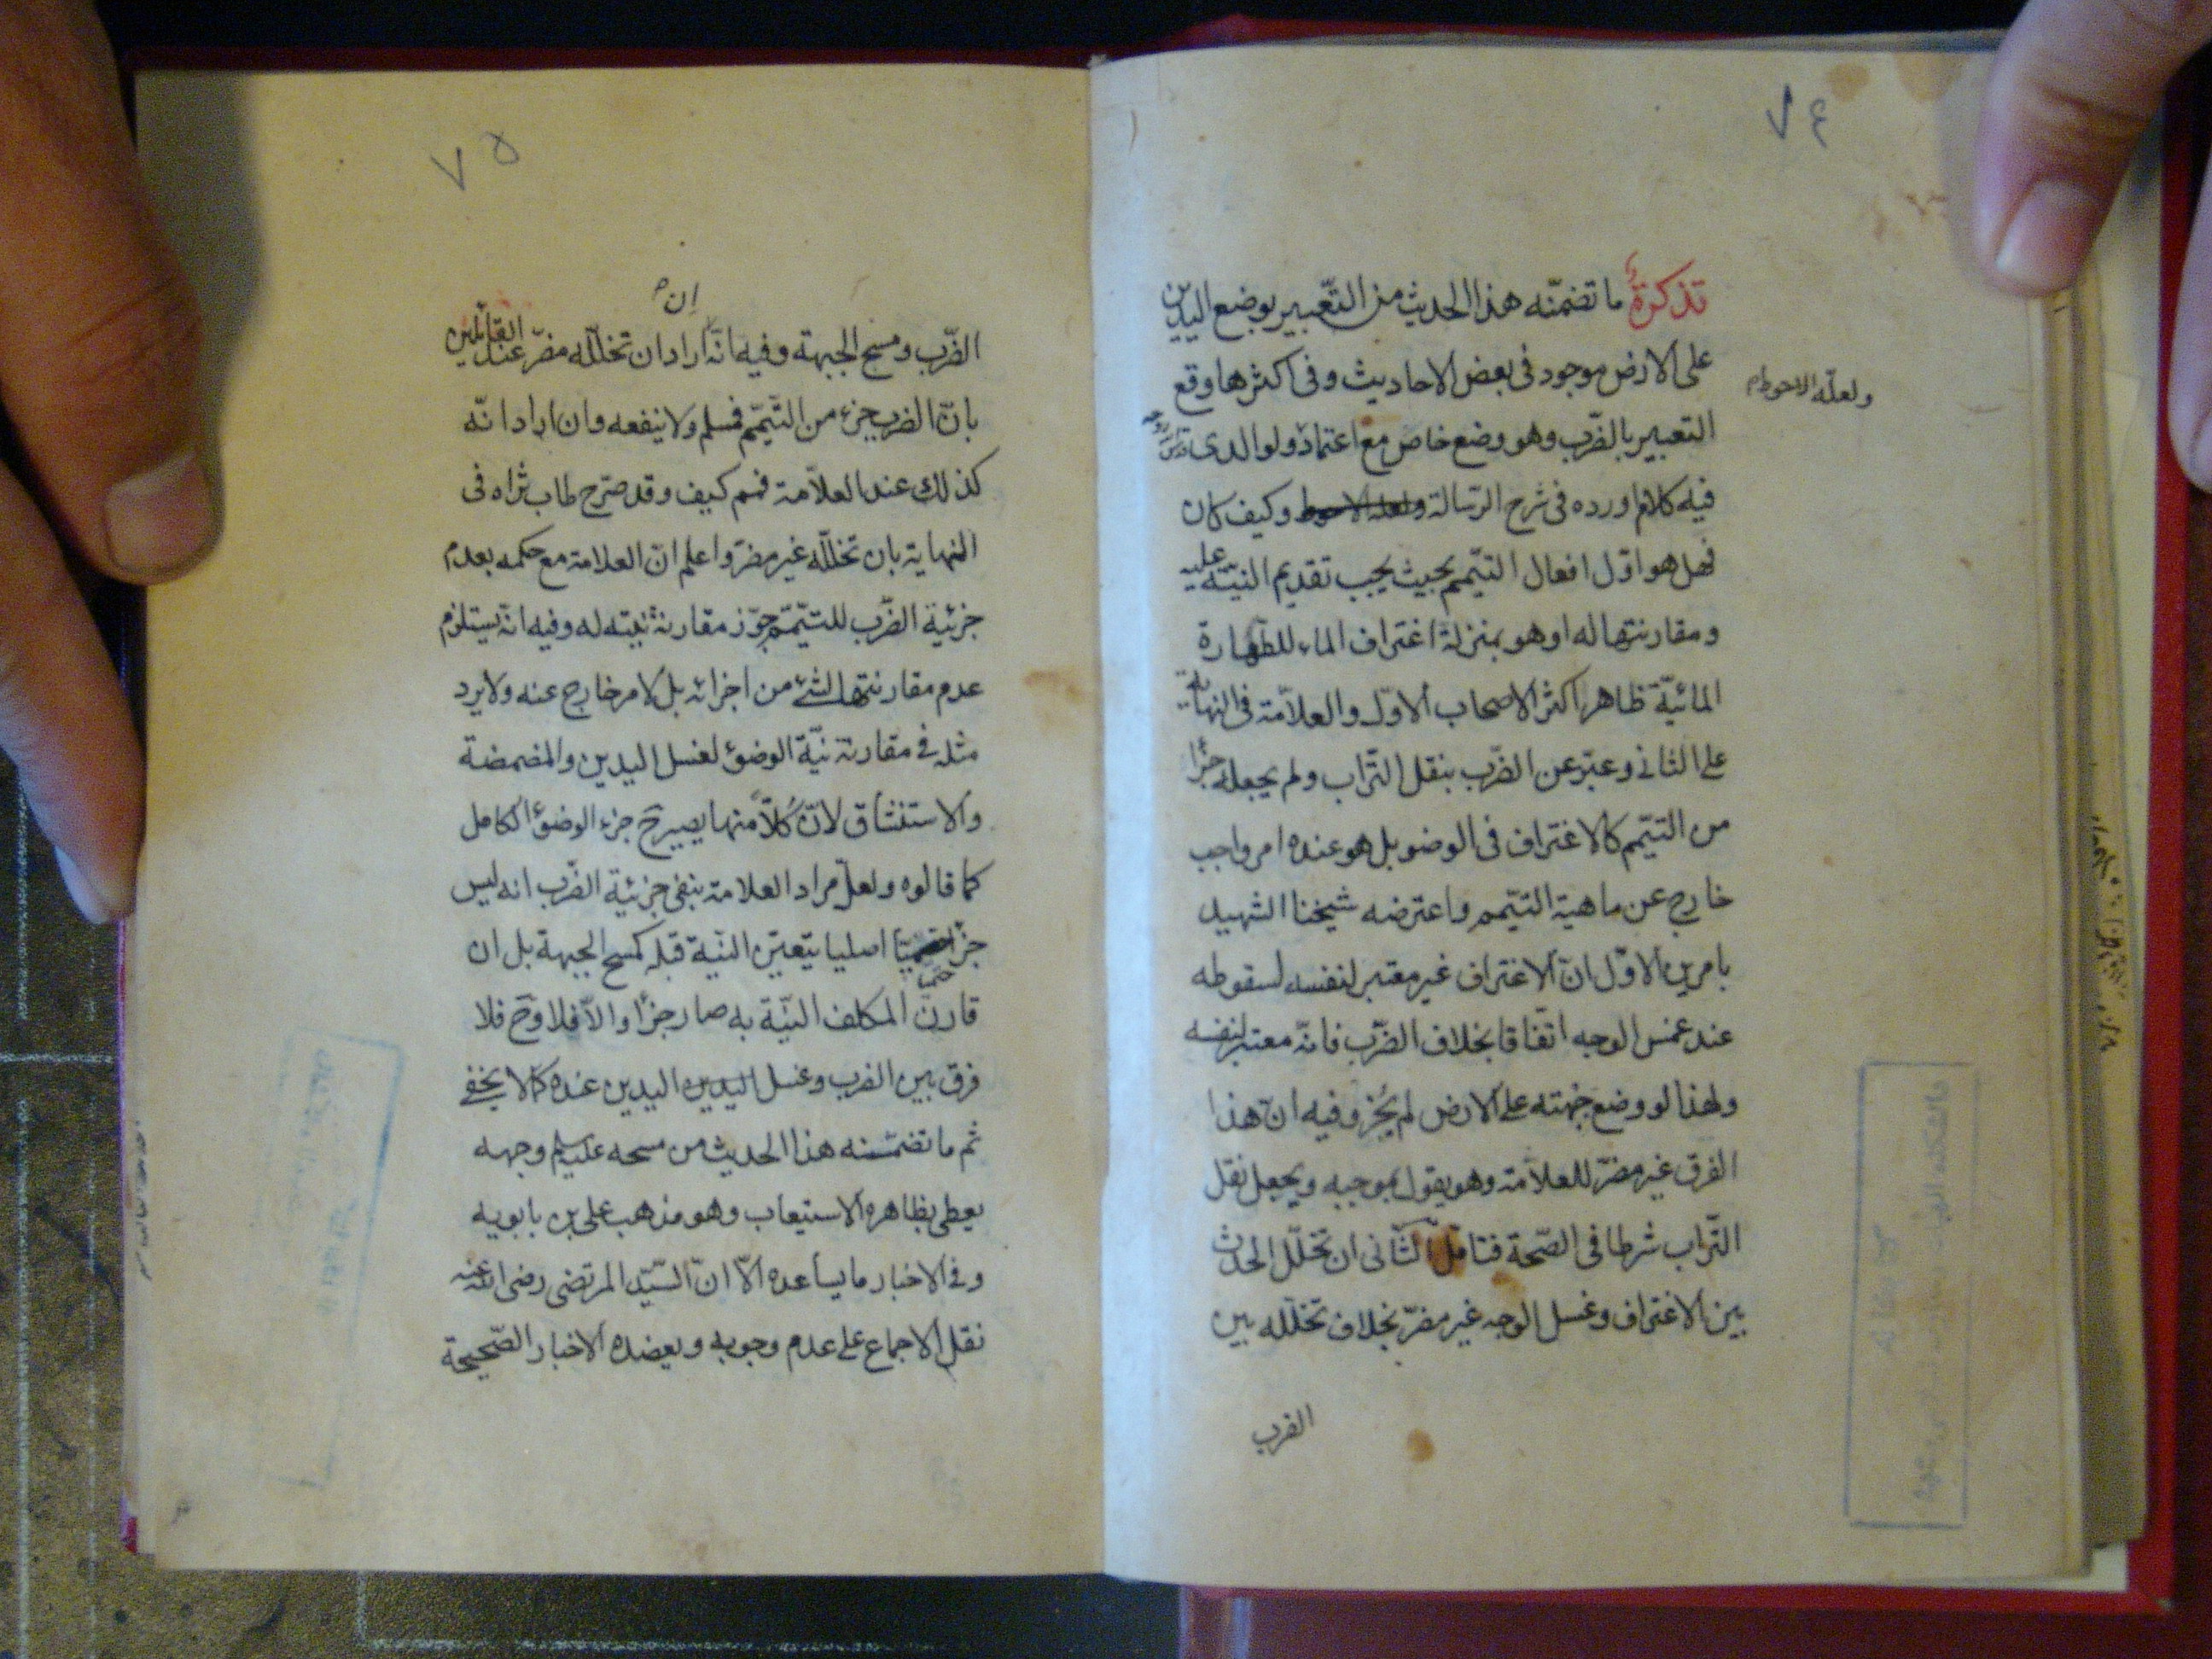 ٧٤
تذكرة ما تضمّنه هذا الحديث من التّعبير بوضع اليدين
على الارض موجود فى بعض الاحاديث وفى اكثرها وقع
ولعلّه الاحوط م
التعبير بالضّرب وهو وضع خاص مع اعتماد ولوالدى قدس روحه
فيه كلام اورده فى شرح الرّسالة ولعله الاحوط وكيف كان
فهل هو اوّل افعال التيّمم بحيث يجب تقديم النيّة عليه
ومقارنتها له او هو بمنزلة اغتراف الماء للطّهارة
المائيّة ظاهر اكثر الاصحاب الاوّل والعلاّمة فى النهاية
على الثانى وعبّر عن الضّرب بنقل التّراب ولم يجعله جزأ
من التيّمم كالاغتراف فى الوضو بل هو عنده امر واجب
خارج عن ماهية التيّمم واعترضه شيخنا الشهيد
بامرين الاوّل انّ الاغتراف غير معتبر لنفسه لسقوطه
عند غمس الوجه اتّفاقا بخلاف الضّرب فانّه معتبر لنفسه
ولهذا لو وضع جبهته على الارض لم يُجز وفيه انّ هذا
الفرق غير مضرّ للعلاّمة وهو يقول بموجبه ويجعل نقل
التّراب شرطا فى الصّحة فتامّل الثّانى ان تخلّل الحدث
بين الاغتراف وغسل الوجه غير مضرّ بخلاف تخلّله بين
الضرب
٧٥
ان
الضّرب ومسح الجبهة وفيه انّه اراد ان تخلّله مضرّ عند القائلين
بانّ الضرب جزء من التّيمّم فمسلم ولا ينفعه وان اراد انّه
كذلك عند العلاّمة فمم كيف وقد صرّح طاب ثراه فى
النهاية بان تخلّله غير مضرّ واعلم انّ العلامة مع حكمه بعدم
جزئية الضّرب للتيّمّم جوّز مقارنة نيته له وفيه انّه يستلزم
عدم مقارنتها لشئ من اجزائه بل لامر خارج عنه ولا يرد
مثله فى مقارنة نيّة الوضؤ لغسل اليدين والمضمضة
والاستنشاق لانّ كُلاًّ منها يصير ح جزء الوضؤ الكامل
كما قالوه ولعلّ مراد العلامة بنفى جزئية الضّرب انه ليس
جزأ حتميّا اصليا يتعيّن النيّة قبله كمسح الجبهة بل ان
قارن المكلف النيّة به صار جزأ والاّ فلا وح فلا
فرق بين الضرب وغسل اليدين اليدين عنده كما لا يخفى
ثم ما تضمّنه هذا الحديث من مسحه عليه السلم وجهه
يعطى بظاهره الاستيعاب وهو مذهب على بن بابويه
وفى الاخبار ما يساعده الاّ انّ السّيّد المرتضى رضى الله عنه
نقل الاجماع على عدم وجوبه ويعضده الاخبار الصّحيحة